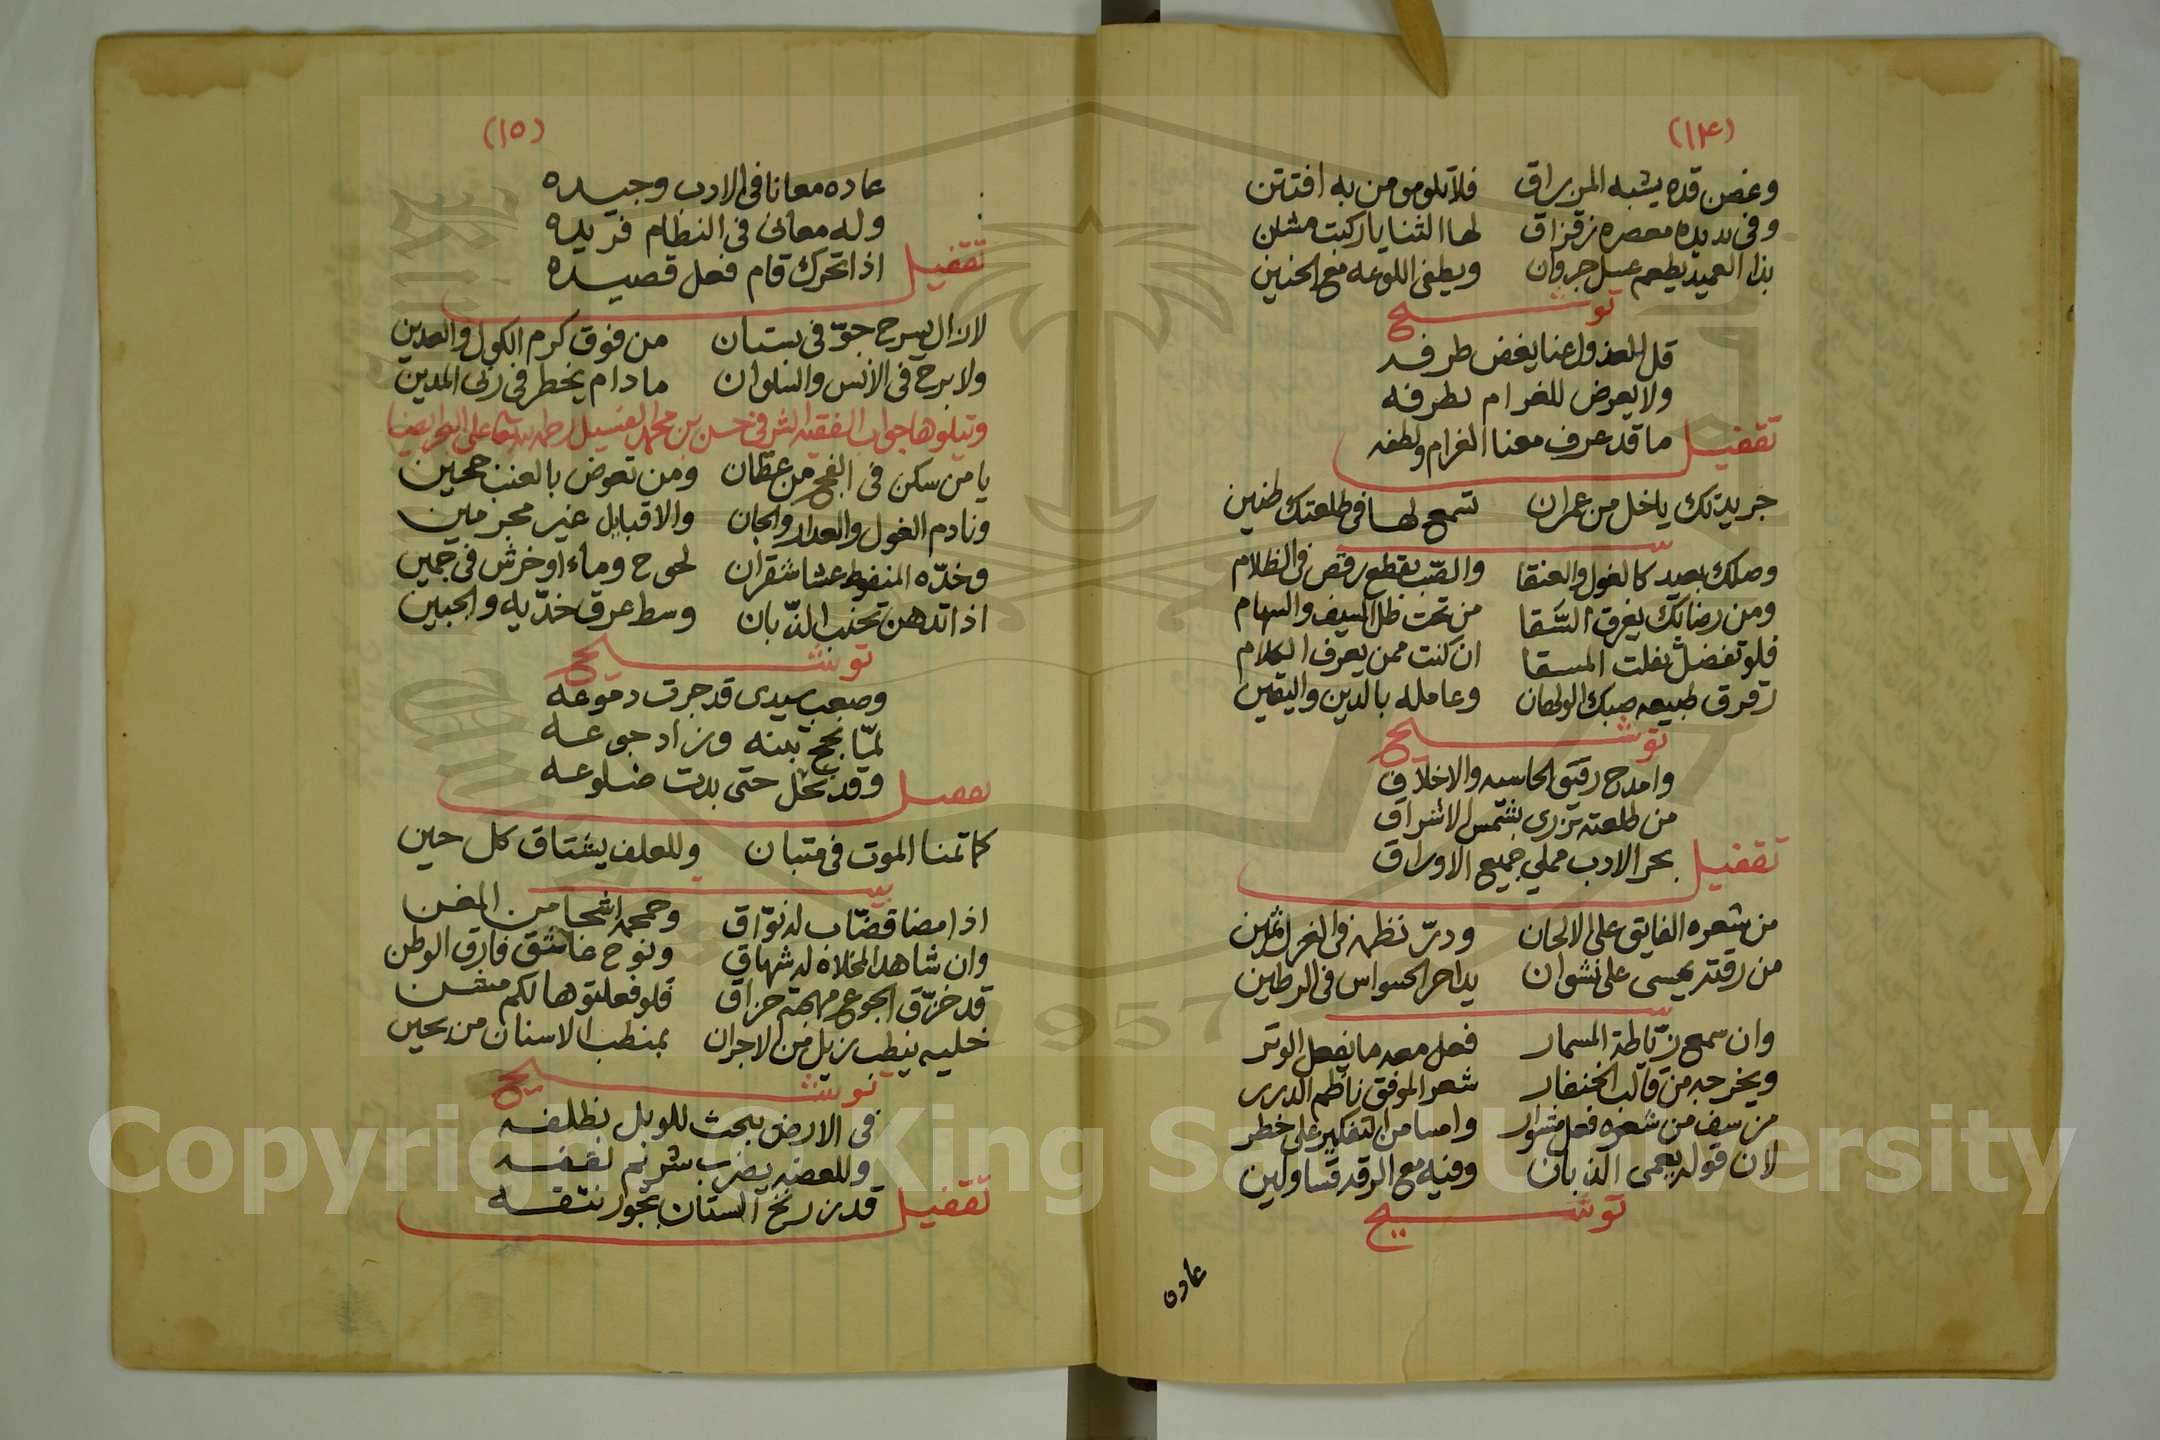 (١٤)
وغصن قده يشبه المزراق فلا تلومو من به افتتن
وفي يديده معصره زقزاق لها الثنايا ركبت مشنن
بذا العميد يطعم عسل جروان ويطفي اللوعه مع الحنين
توشيح
قل للعذول عنا يغض طرفه
ولا يعرض للغرام بطرفه
تقفيل ما قد عرف معنا الغرام ولطفه
جريدتك ياخل من عمران تسمع لها في طلعتك طنين
بيت
وصلك بعيد كالغول والعنقا والصب يقطع رقص في الظلام
ومن رضابك يغرق السقا من تحت ظل السيف والسهام
فلو تفضل يفلت المسقا ان كنت ممن يعرف الكلام
ترفرق طبيعه صبك الولهان وعامله بالدين واليقين
توشيح
وامدح رقيق الحاسه والاخلاق
من طلعته تزري بشمس الاشراق
تقفيل بحر الادب مملي جميع الاوراق
من شعره الفايق على الالحان ودر نظمه في الغزل ثمين
من رقته يمسى على نشوان يداحر الحسواس في الرطين
بيت
وان سمع زباطة المسمار فعل معه ما يفعل الوتر
ويخرجه من قالب الخنفار شعر الموفق ناظم الدرر
من سف من شعره فعل مشوار وامسا من التفكير على خطر
لان قوله يعمى الذبان وفيه مع الرقد قساولين
توشيح
عاده
(١٥)
عاده معانا في الادب وجيده
وله معاني في النظام فريده
تقفيل اذا تحرك قام فعل قصيده
لا زال يسرح جو في بستان من فوق كرم الكول والعدين
ولا برح في الانس والسلوان مادام يخطر في ربى المدين
وتيلوها جواب الفقيه الشرفي حسن بن محمد الفسيل رحمه الله تعالى على البحر ايضا
يا من سكن في الفج من عظان ومن تعوض بالعنب حجين
ونادم الغول والعدار والجان والاقبايل غير مجرمين
وخده المنفوط عشا شقران لحوح وماء او خرش في جمين
اذا تدهن تجنب الذبان وسط عرق خديه والجبين
توشيح
وصعب سيدي قد جرت دموعه
لما بجح تبنه وزاد جوعه
تقفيل وقد نحل حتى بدت ضلوعه
كما تمنا الموت في متبان وللعلف يشتاق كل حين
بيت
اذا مضا قضاب له نواق وحمحمه اشجا من المغن
وان شاهد المخلاه له شهاق ونوح عاشق فارق الوطن
قد خزق الجوع مهجته خزاق فلو فعلتوها لكم منن
خليه ينطب زبل من الاجران بمنطب الاسنان من يحين
توشيح
في الارض يبحث للوبل بظلفه
وللعضه يضرب بشرنم لقفه
تقفيل قد زرنخ الستان بجور نتفه
Copyright © King Saud University
1957